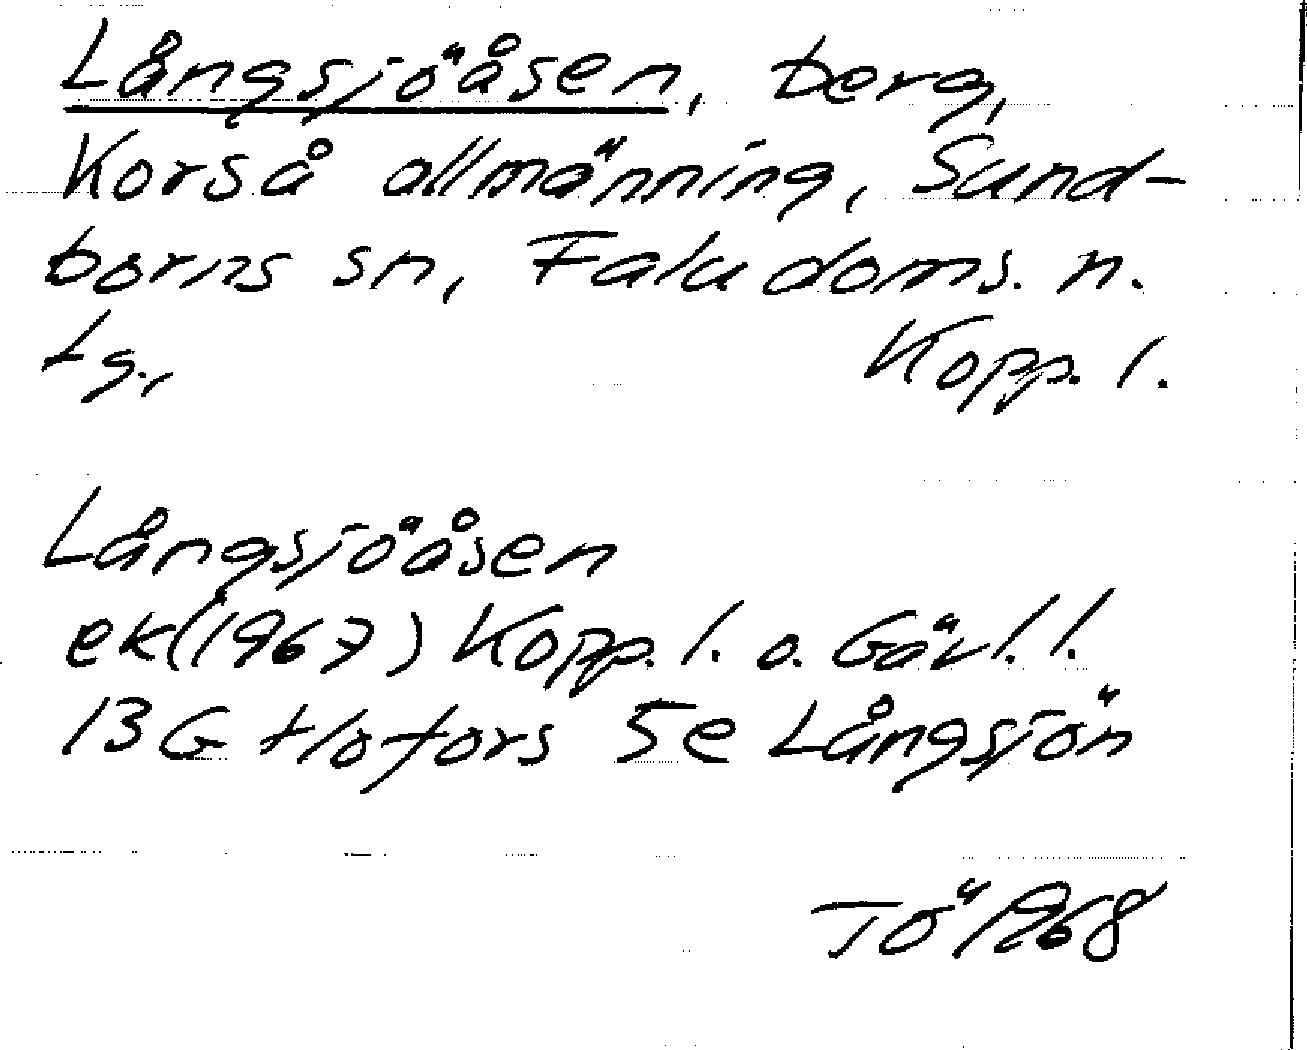 Långsjöåsen, berg,
Korså allmänning, Sund-
borns sn, Falu doms. n.
tg., Kopp. l.
Långsjöåsen
ek(1967) Kopp. l. o. Gävl. l.
13G Hofors 5e Långsjön
TÖ 1968